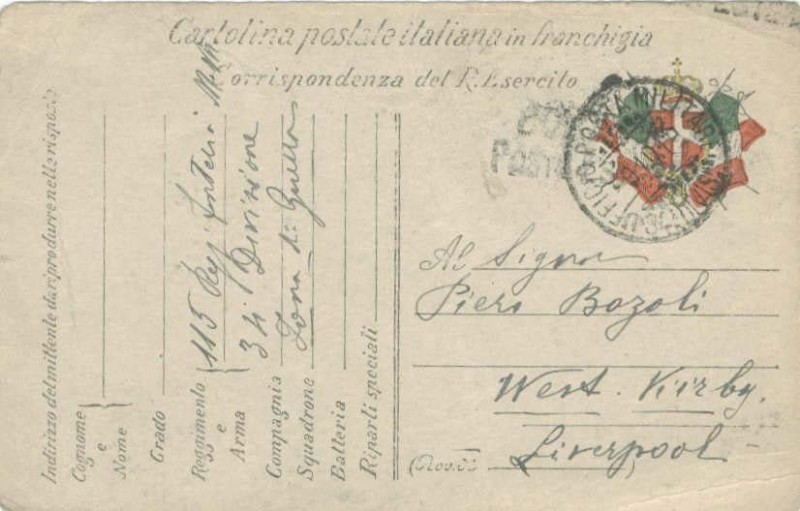 Cartolina postale italiana in franchigia
Corrispondenza del R. Esercito
Indirizzo del mittente da riprodurre nella risposta
Cognome
e
Nome
Grado
Reggimento
e
Arma
115 Regg. Fanteria
34 Divisione
Compagnia
Zona di Guerra
Squadrone
Batteria
Riparti speciali
UFFICIO POSTA MILITARE
Al Signor
Piero Bozoli
West. Kirby.
Liverpool